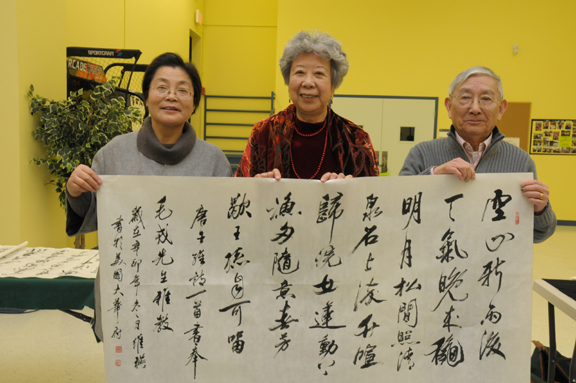 SPORTCRAFT
空山新雨後
天氣晚來穐
明月松間照清
泉石上流竹喧
歸浣女蓮動下
漁舟隨意春芳
歇王孫自可留
唐王維詩一首書奉
毛戎先生雅教
歲在辛卯冬月維
書於美國大華府